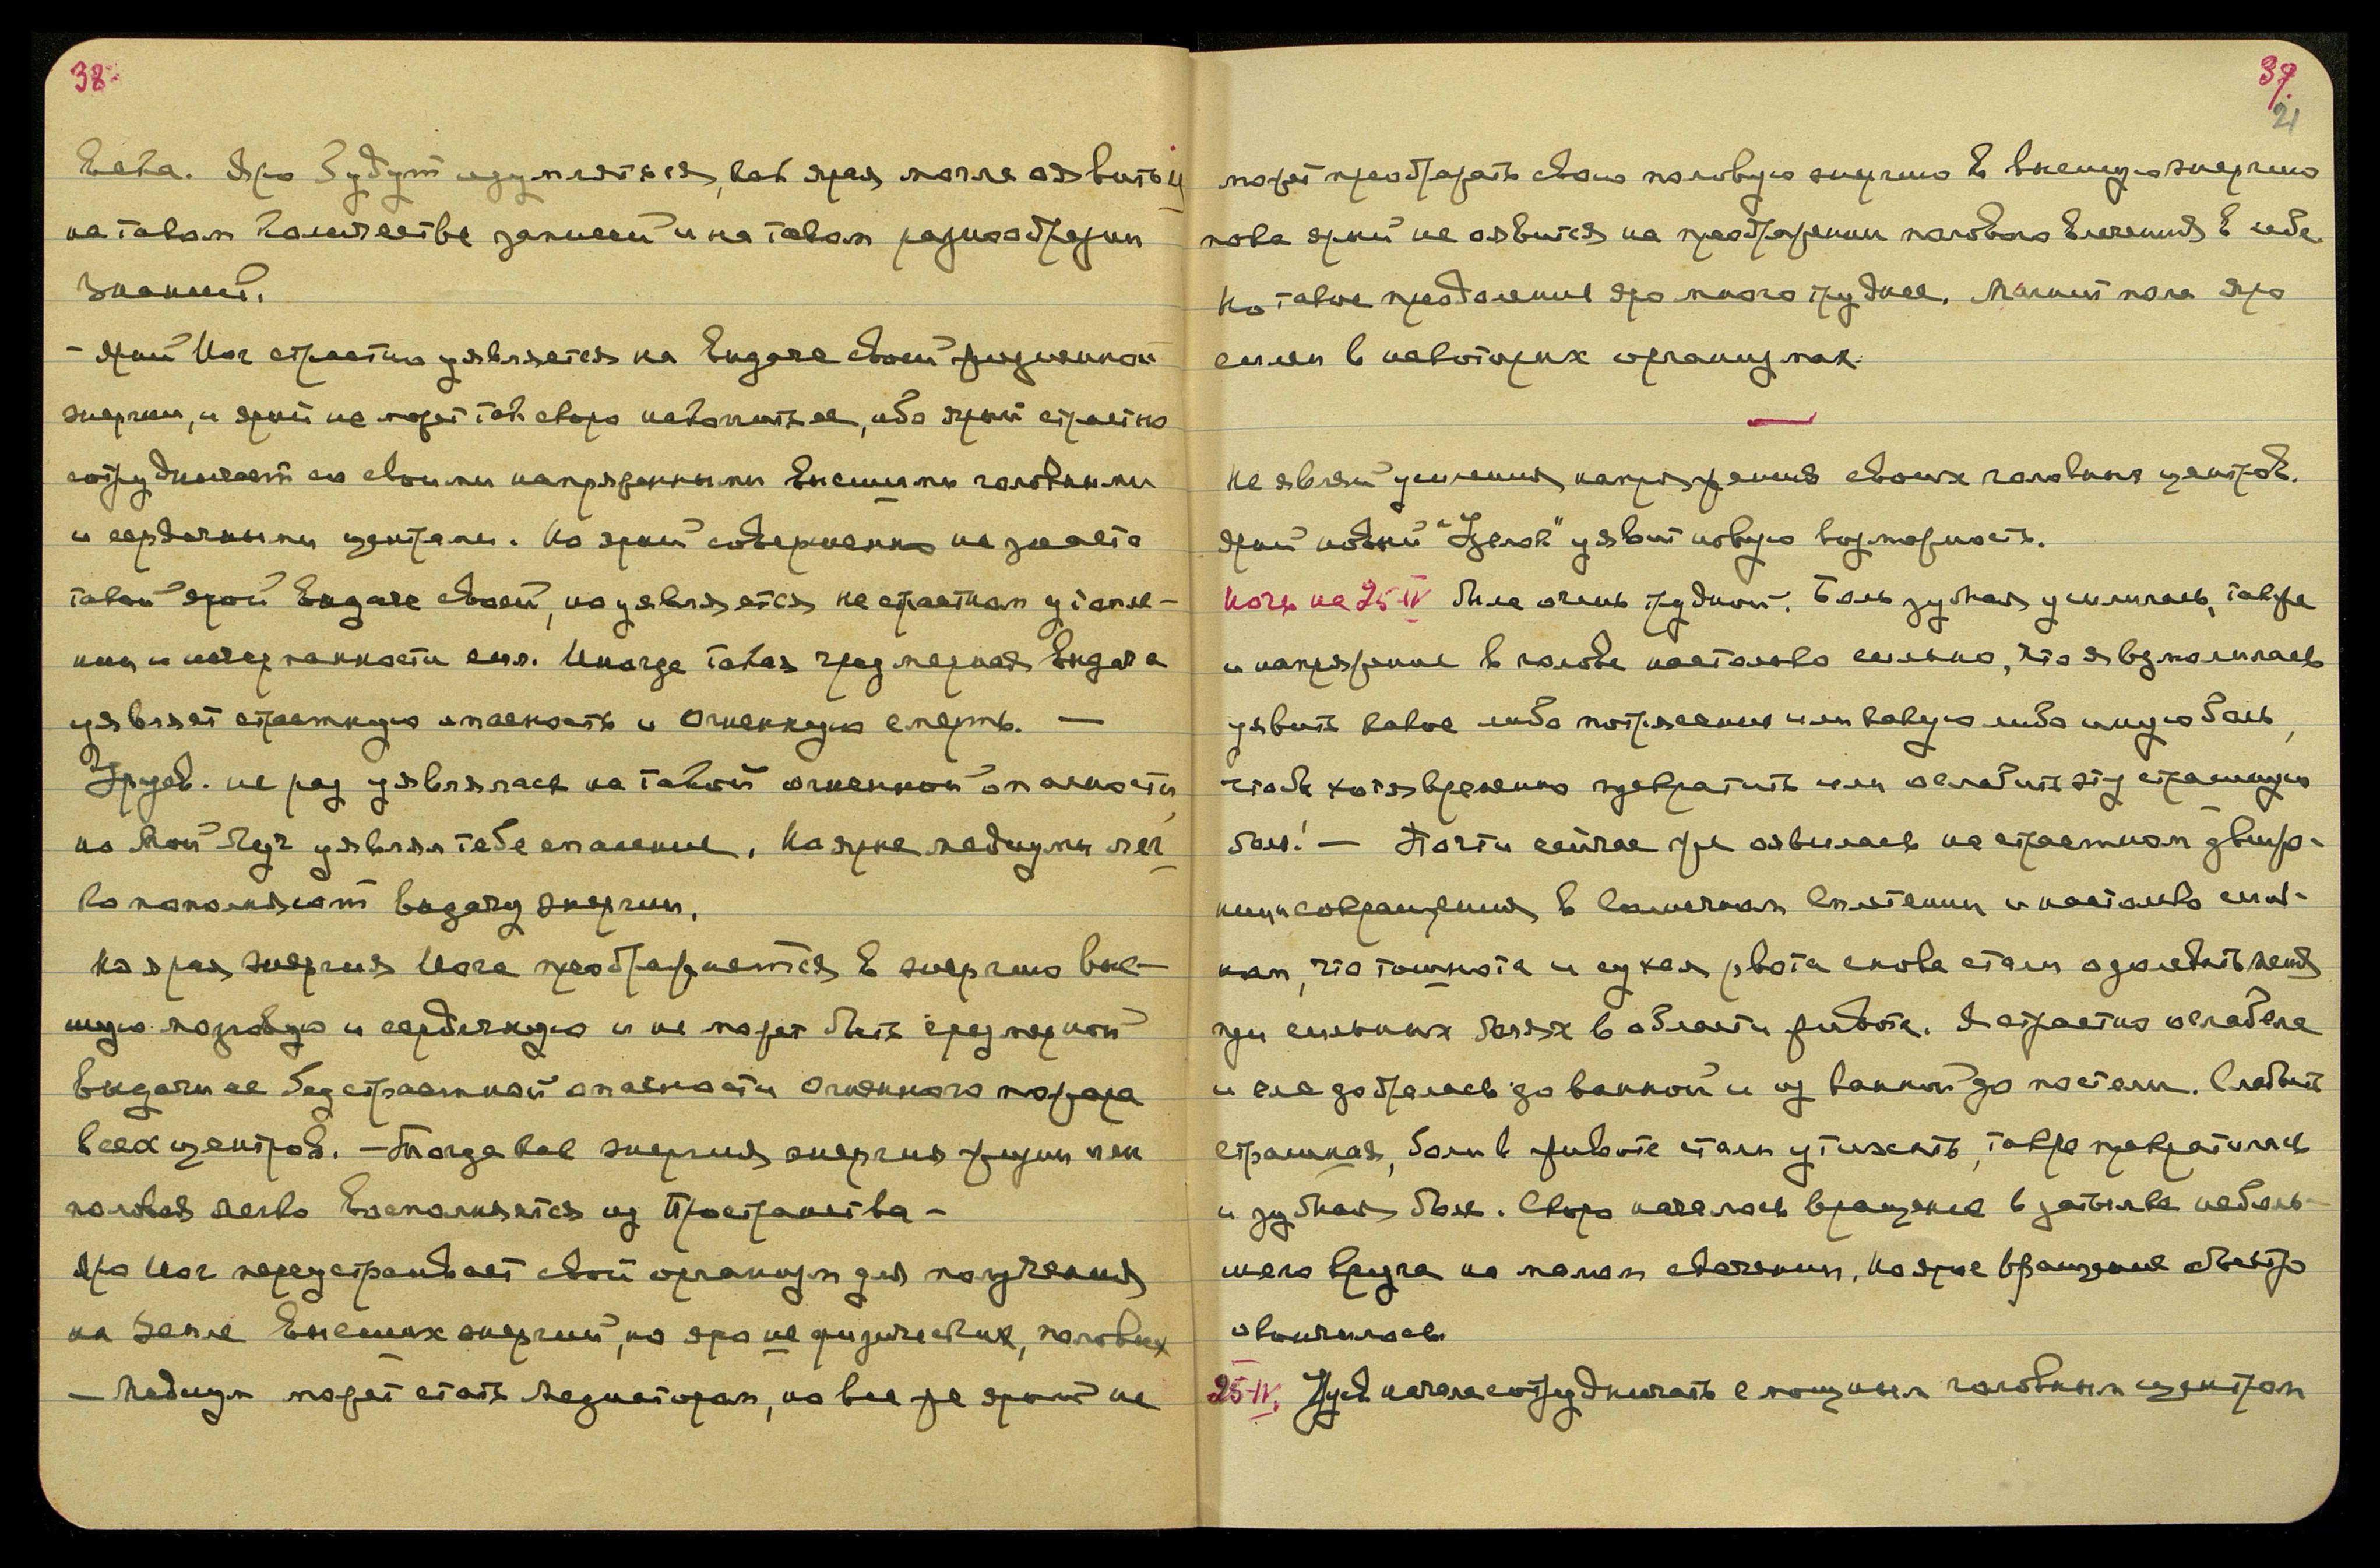 38.
века. Яро будут изумляться, как ярая могла оявиться
на таком количестве записей и на таком разнообразии
знаний.
– Ярый Йог страстно уявляется на выдаче своей жизненной
энергии, и ярый не может так скоро накопить ее, ибо ярый страстно
сотрудничает со своими напряженными высшими головными
и сердечными центрами. Но ярый совершенно не знает о
такой ярой выдаче своей, но уявляется на страстном утомле-
нии и исчерпанности сил. Иногда такая чрезмерная выдача
уявляет страстную опасность и огненную смерть. —
Урусв. не раз уявлялась на такой огненной опасности,
но Мой Луч уявлял тебе спасение. Но ярые медиумы лег-
ко пополняют выдачу энергии.
Но ярая энергия Йога преображается в энергию выс-
шую мозговую и сердечную и не может быть чрезмерной
выдачи ее без страстной опасности огненного пожара
всех центров. – Тогда как энергия энергия жизни или
половая легко восполняется из Пространства –
Яро Йог переустраивает свой организм для получения
на Земле высших энергий, но яро не физических, половых
– Медиум может стать Медиатором, но все же ярый не
39.
21
может преображать свою половую энергию в высшую энергию
пока ярый не оявится на преображении полового влечения в себе.
Но такое преодоление яро много труднее. Магнит пола яро
силен в некоторых организмах.
Не являй усиления напряжения своих головных центров.
Ярый новый уявит новую возможность.
Ночь на 25-IV была очень трудной. Боль зубная усилилась, также
и напряжение в голове настолько сильно, что я взмолилась
уявить какое либо потрясение или какую либо иную боль,
чтобы хотя временно прекратить или ослабить эту страшную
боль! — Почти сейчас же оявилась на страстном движе-
нии и сокращения в солнечном сплетении и настолько силь-
ном, что тошнота и сухая рвота снова стали одолевать меня
при сильных болях в области живота. Я страстно ослабела
и еле добралась до ванной и из ванной до постели. Слабость
страшная, боли в животе стали утихать, также прекратилась
и зубная боль. Скоро началось вращение в затылке неболь-
шого круга на малом свечении, но яркое вращение быстро
окончилось.
25-IV. Урусв начала сотрудничать с мощным головным центром